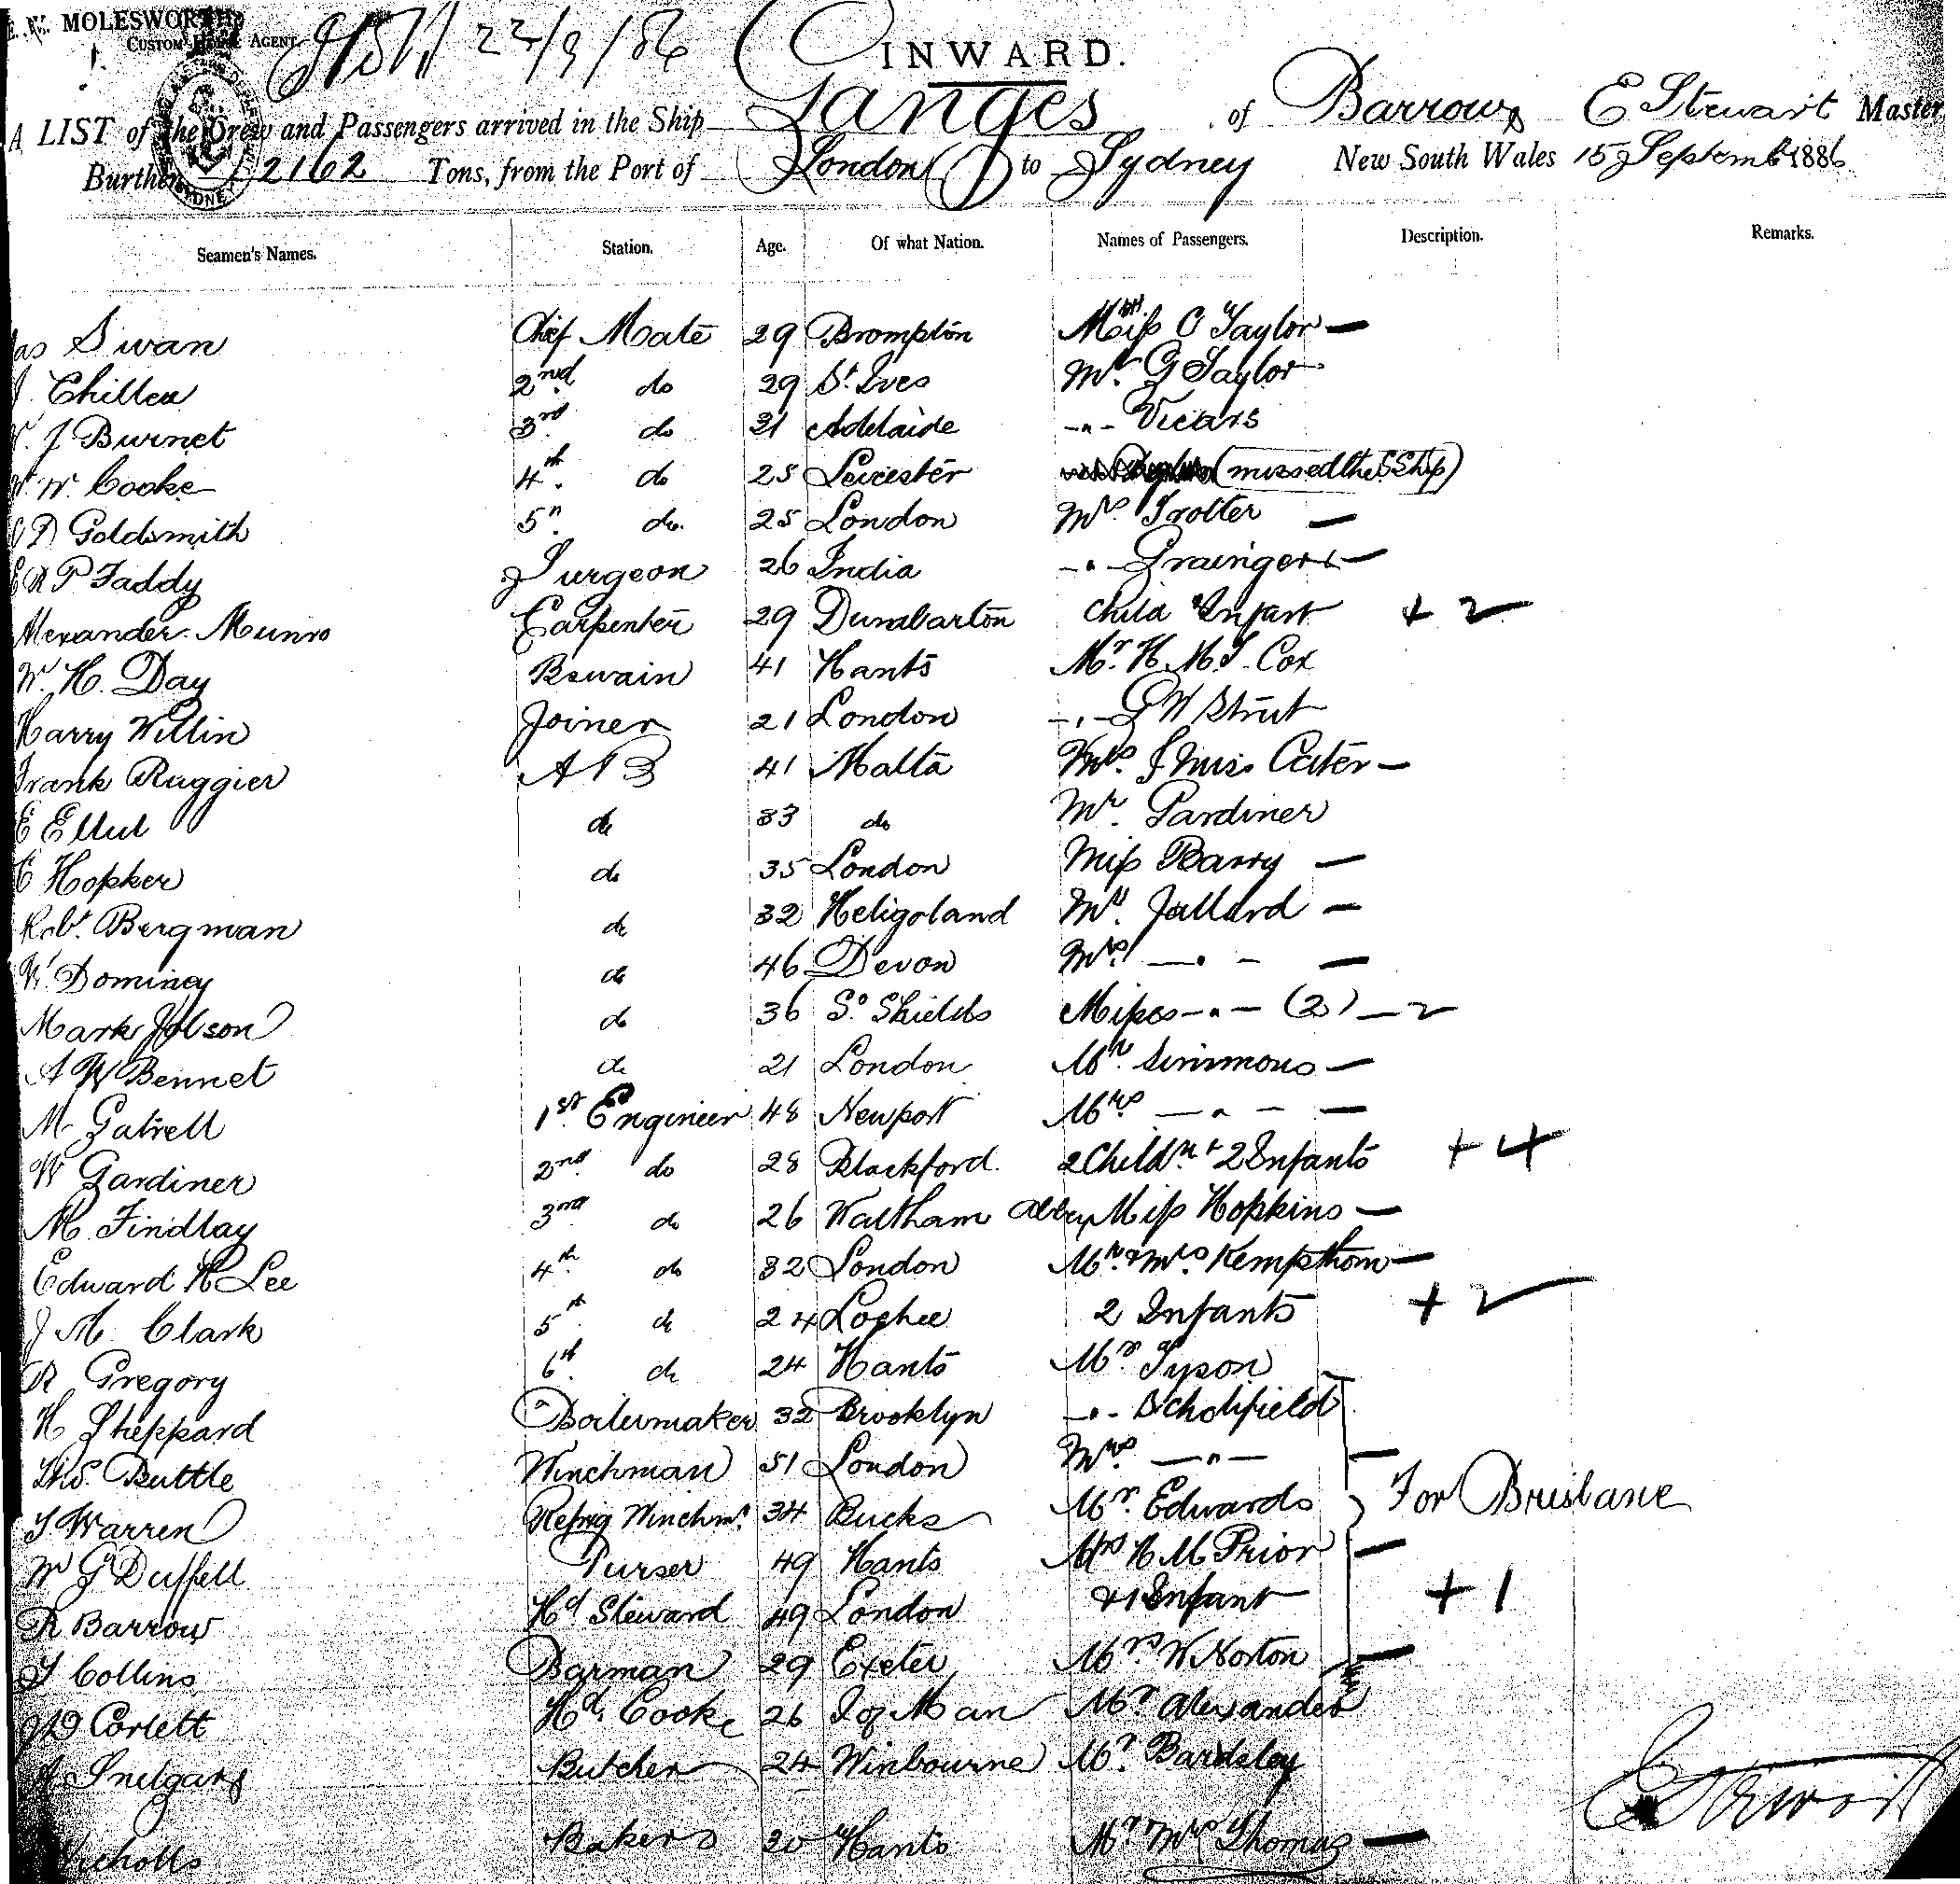 MOLESWORTH
CUSTOM HOUSE AGENT
22/9/86
INWARD.
A LIST of the Crew and Passengers arrived in the Ship Ganges of Barrow, E Stewart Master
Burthen 2162 Tons, from the Port of London to Sydney New South Wales 15 September 1886
Seamen's Names. Station. Age. Of what Nation. Names of Passengers. Description. Remarks.
Jas Swan Chief Mate 29 Brompton Miss C Taylor —
J. Chillea 2nd do 29 St. Ives Mr. G Taylor
J Burnet 3rd do 31 Adelaide -"- Vicars
W. Cooke 4th do 25 Leicester (missed the Ship)
D Goldsmith 5th do. 25 London Mrs. Trotter —
P Faddy Surgeon 26 India -"- Grainger —
Alexander Munro Carpenter 29 Dumbarton Child & Infant + 2
W. H. Day Bswain 41 Hants Mr. H. M. S. Cox
Harry Willin Joiner 21 London -"- G W Strut
Frank Ruggier AB 41 Malta Mrs. & Miss Cater —
E Ellul do 33 do Mr. Gardiner
C Hopker do 35 London Miss Barry —
Robt. Bergman do 32 Heligoland Mr. Jallard —
W. Dominey do 46 Devon Mrs. -"- —
Mark Jolson do 36 So. Shields Misses -"- (2) — 2
A W Bennet do 21 London Mr. Simmons —
M Gatrell 1st. Engineer 48 Newport Mrs -"- —
W Gardiner 2nd. do 28 Blackford. 2 Childn. + 2 Infants + 4
M. Findlay 3rd do 26 Waltham Abbey Miss Hopkins —
Edward H Lee 4th. do 32 London Mr. & Mrs. Kempthorn —
J M. Clark 5th do 24 Lochee 2 Infants + 2
R Gregory 6th. do 24 Hants Mr. Tyson
H Sheppard Boilermaker 32 Brooklyn -"- Scholifield
Thos. Buttle Winchman 51 London Mrs. -"- —
T Warren Refrig Winchmn. 34 Bucks Mr. Edwards } For Brisbane
W G Duffell Purser 49 Hants Mrs H M Prior —
R Barrow Hd Steward 49 London & 1 Infant + 1
T Collins Barman 29 Exeter Mrs. W Norton —
Corlett Hd. Cooke 26 I of Man Mr Alexander
Snelgar Butcher 24 Winbourne Mr. Bardsley
Nicholls Bakers 30 Hants Mr. Mrs Thomas —
E Stewart